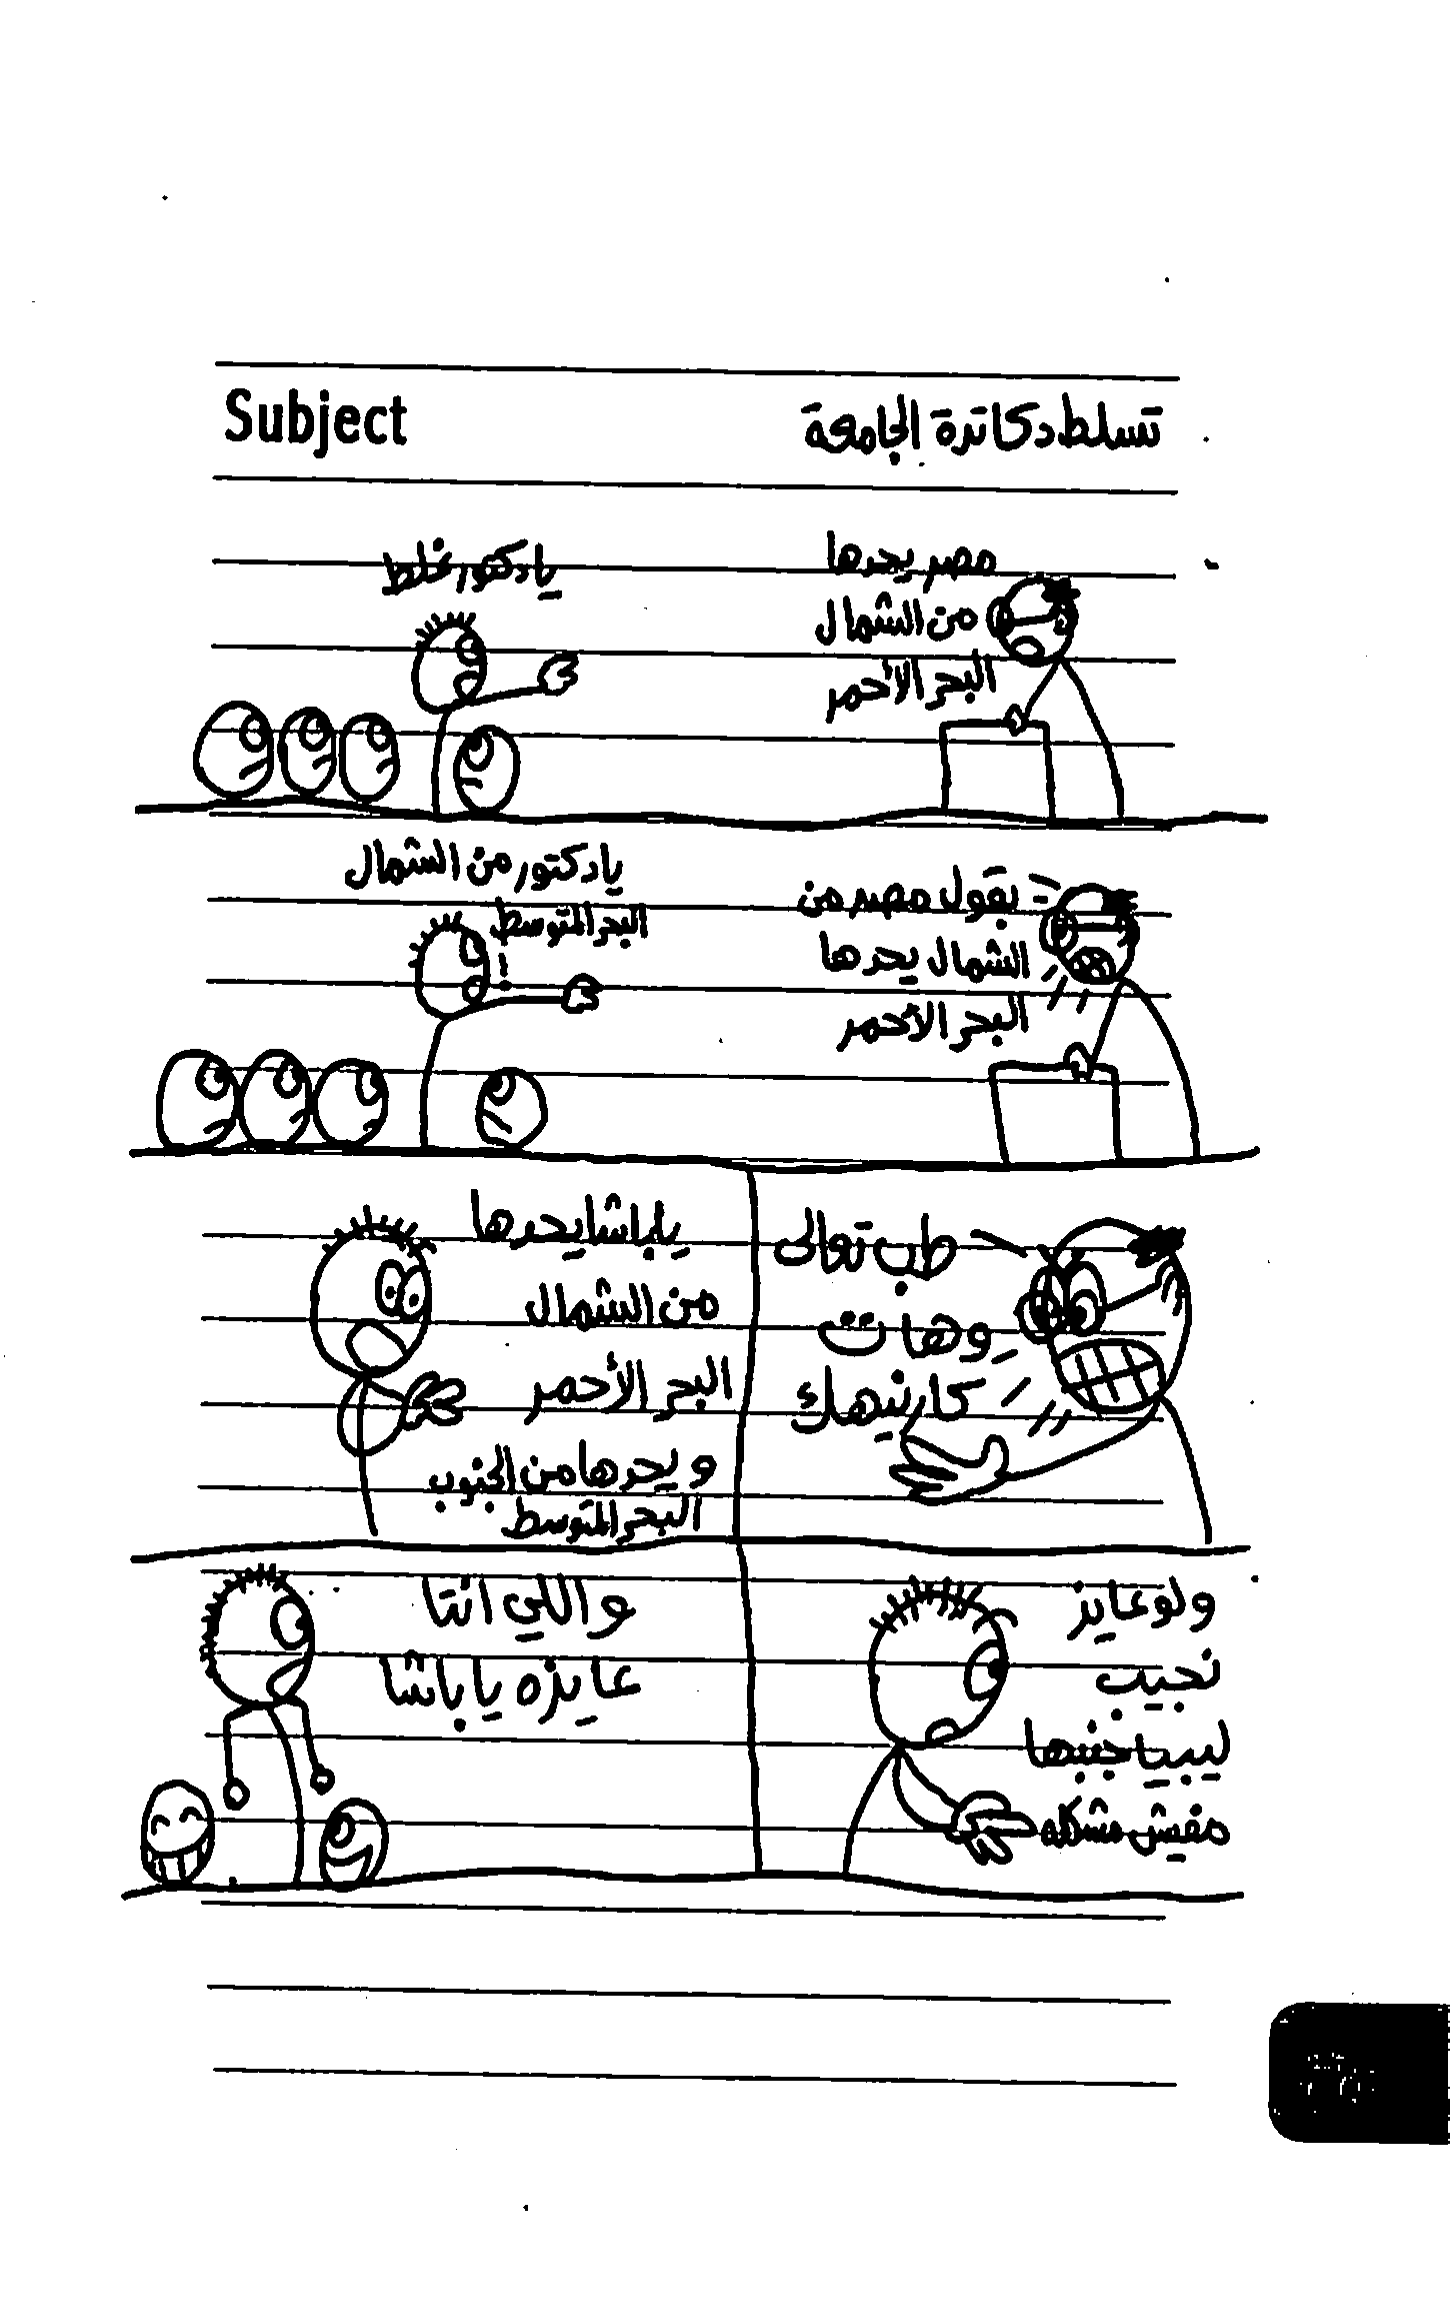 Subject
تسلط دكاترة الجامعة
مصر يحدها
من الشمال
البحر الأحمر
يا دكتور غلط
بقول مصر من
الشمال يحدها
البحر الأحمر
يا دكتور من الشمال
البحر المتوسط
!
طب تعالى
وهات
كارنيهك
يا باشا يحدها
من الشمال
البحر الأحمر
و يحدها من الجنوب
البحر المتوسط
ولو عايز
نجيب
ليبيا جنبها
مفيش مشكله
و اللي انتا
عايزه يا باشا